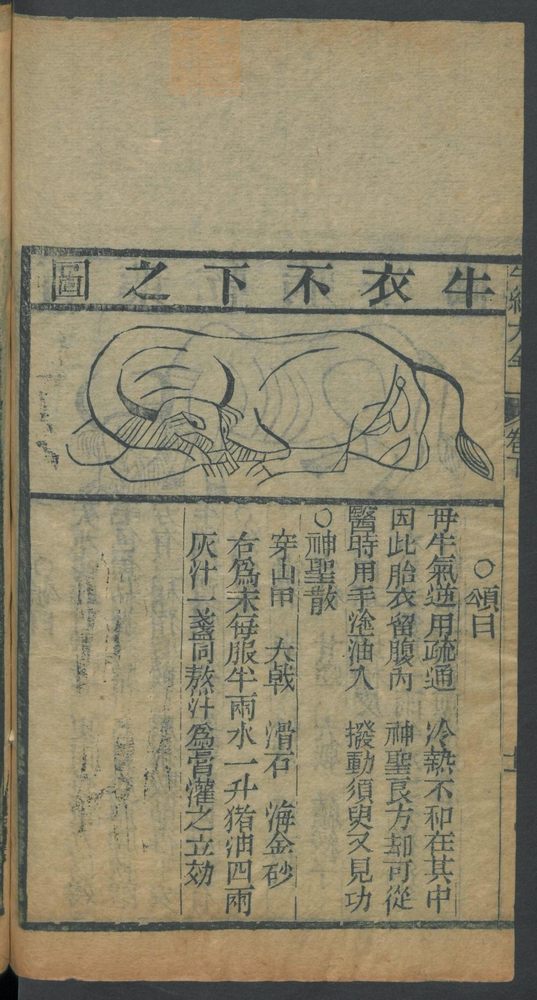 牛衣不下之圖
○頌曰
母牛氣逆用疏通 冷熱不和在其中
因此胎衣留腹內 神聖良方却可從
醫時用手塗油入 撥動須臾又見功
○神聖散
穿山甲 大戟 滑石 海金砂
右爲末每服半兩水一升猪油四兩
灰汁一盞同熬汁爲膏灌之立効